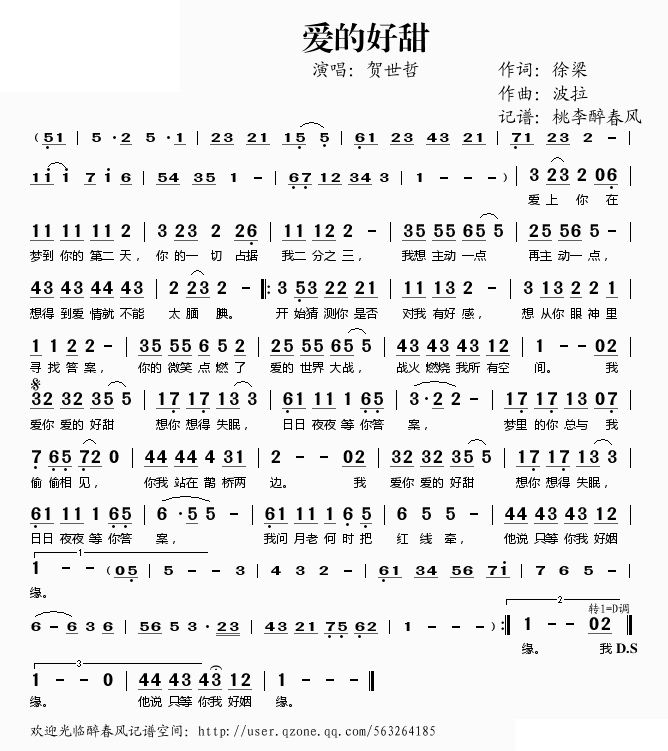 爱的好甜
演唱：贺世哲 作词：徐梁
作曲：波拉
记谱：桃李醉春风
( 5 1 | 5 · 2 5 · 1 | 2 3 2 1 1 5 5 | 6 1 2 3 4 3 2 1 | 7 1 2 3 - - |
1 i i 7 i 6 | 5 4 3 5 1 - | 6 7 1 2 3 4 3 | 1 - - - ) | 3 2 3 2 0 6 |
爱 上 你 在
1 1 1 1 1 1 2 - | 3 2 3 2 2 6 | 1 1 1 2 2 - | 3 5 5 5 6 5 5 | 2 5 5 6 5 - |
梦到 你的 第二 天， 你 的一 切 占据 我二 分之 三， 我想 主动 一点 再主 动一 点，
4 3 4 3 4 4 4 3 | 2 2 3 2 - ‖: 3 5 3 2 2 2 1 | 1 1 1 3 2 - | 3 2 3 2 2 1 |
想得 到爱 情就 不能 太 腼 腆。 开 始猜 测你 是否 对我 有好 感， 想 从你 眼神 里
1 1 2 2 - | 3 5 5 5 6 5 2 | 2 5 5 5 6 5 5 | 4 4 4 4 4 3 1 2 | 1 - - 0 2 |
寻 找 答 案， 你的 微笑 点燃 了 爱的 世界 大战， 战火 燃烧 我所 有空 间。 我
3 2 3 2 3 5 5 | 1 7 1 7 1 3 3 | 6 1 1 1 1 1 6 5 | 3 · 2 2 - | 1 7 1 7 1 3 0 7 |
爱你 爱的 好甜 想你 想得 失眠， 日日 夜夜 等你 答 案， 梦里 的你 总与 我
7 6 5 7 2 0 | 4 4 4 4 4 3 1 | 2 - - 0 2 | 3 2 3 2 3 5 5 | 1 7 1 7 1 3 3 |
偷 偷相 见， 你我 站在 鹊 桥两 边。 我 爱你 爱的 好甜 想你 想得 失眠，
6 1 1 1 1 1 6 5 | 6 · 5 5 - | 6 1 1 1 2 1 6 | 6 5 5 - | 4 4 4 3 4 3 1 2 |
日日 夜夜 等你 答 案， 我问 月老 何时 把 红 线 牵， 他说 只等 你我 好姻
1
1 - - ( 0 5 | 5 - - 3 | 4 3 2 - | 6 1 3 4 5 6 7 i | 7 6 5 - |
缘。
2
转1=D调
6 - 6 3 6 | 5 6 5 3 · 2 3 | 4 3 2 1 7 5 6 2 | 1 - - - ) :‖ 1 - - 0 2 ‖
缘。 我 D.S
3
1 - - 0 | 4 4 4 3 4 3 1 2 | 1 - - - ‖
缘。 他说 只等 你我 好姻 缘。
欢迎光临醉春风记谱空间：http://user.qzone.qq.com/563264185